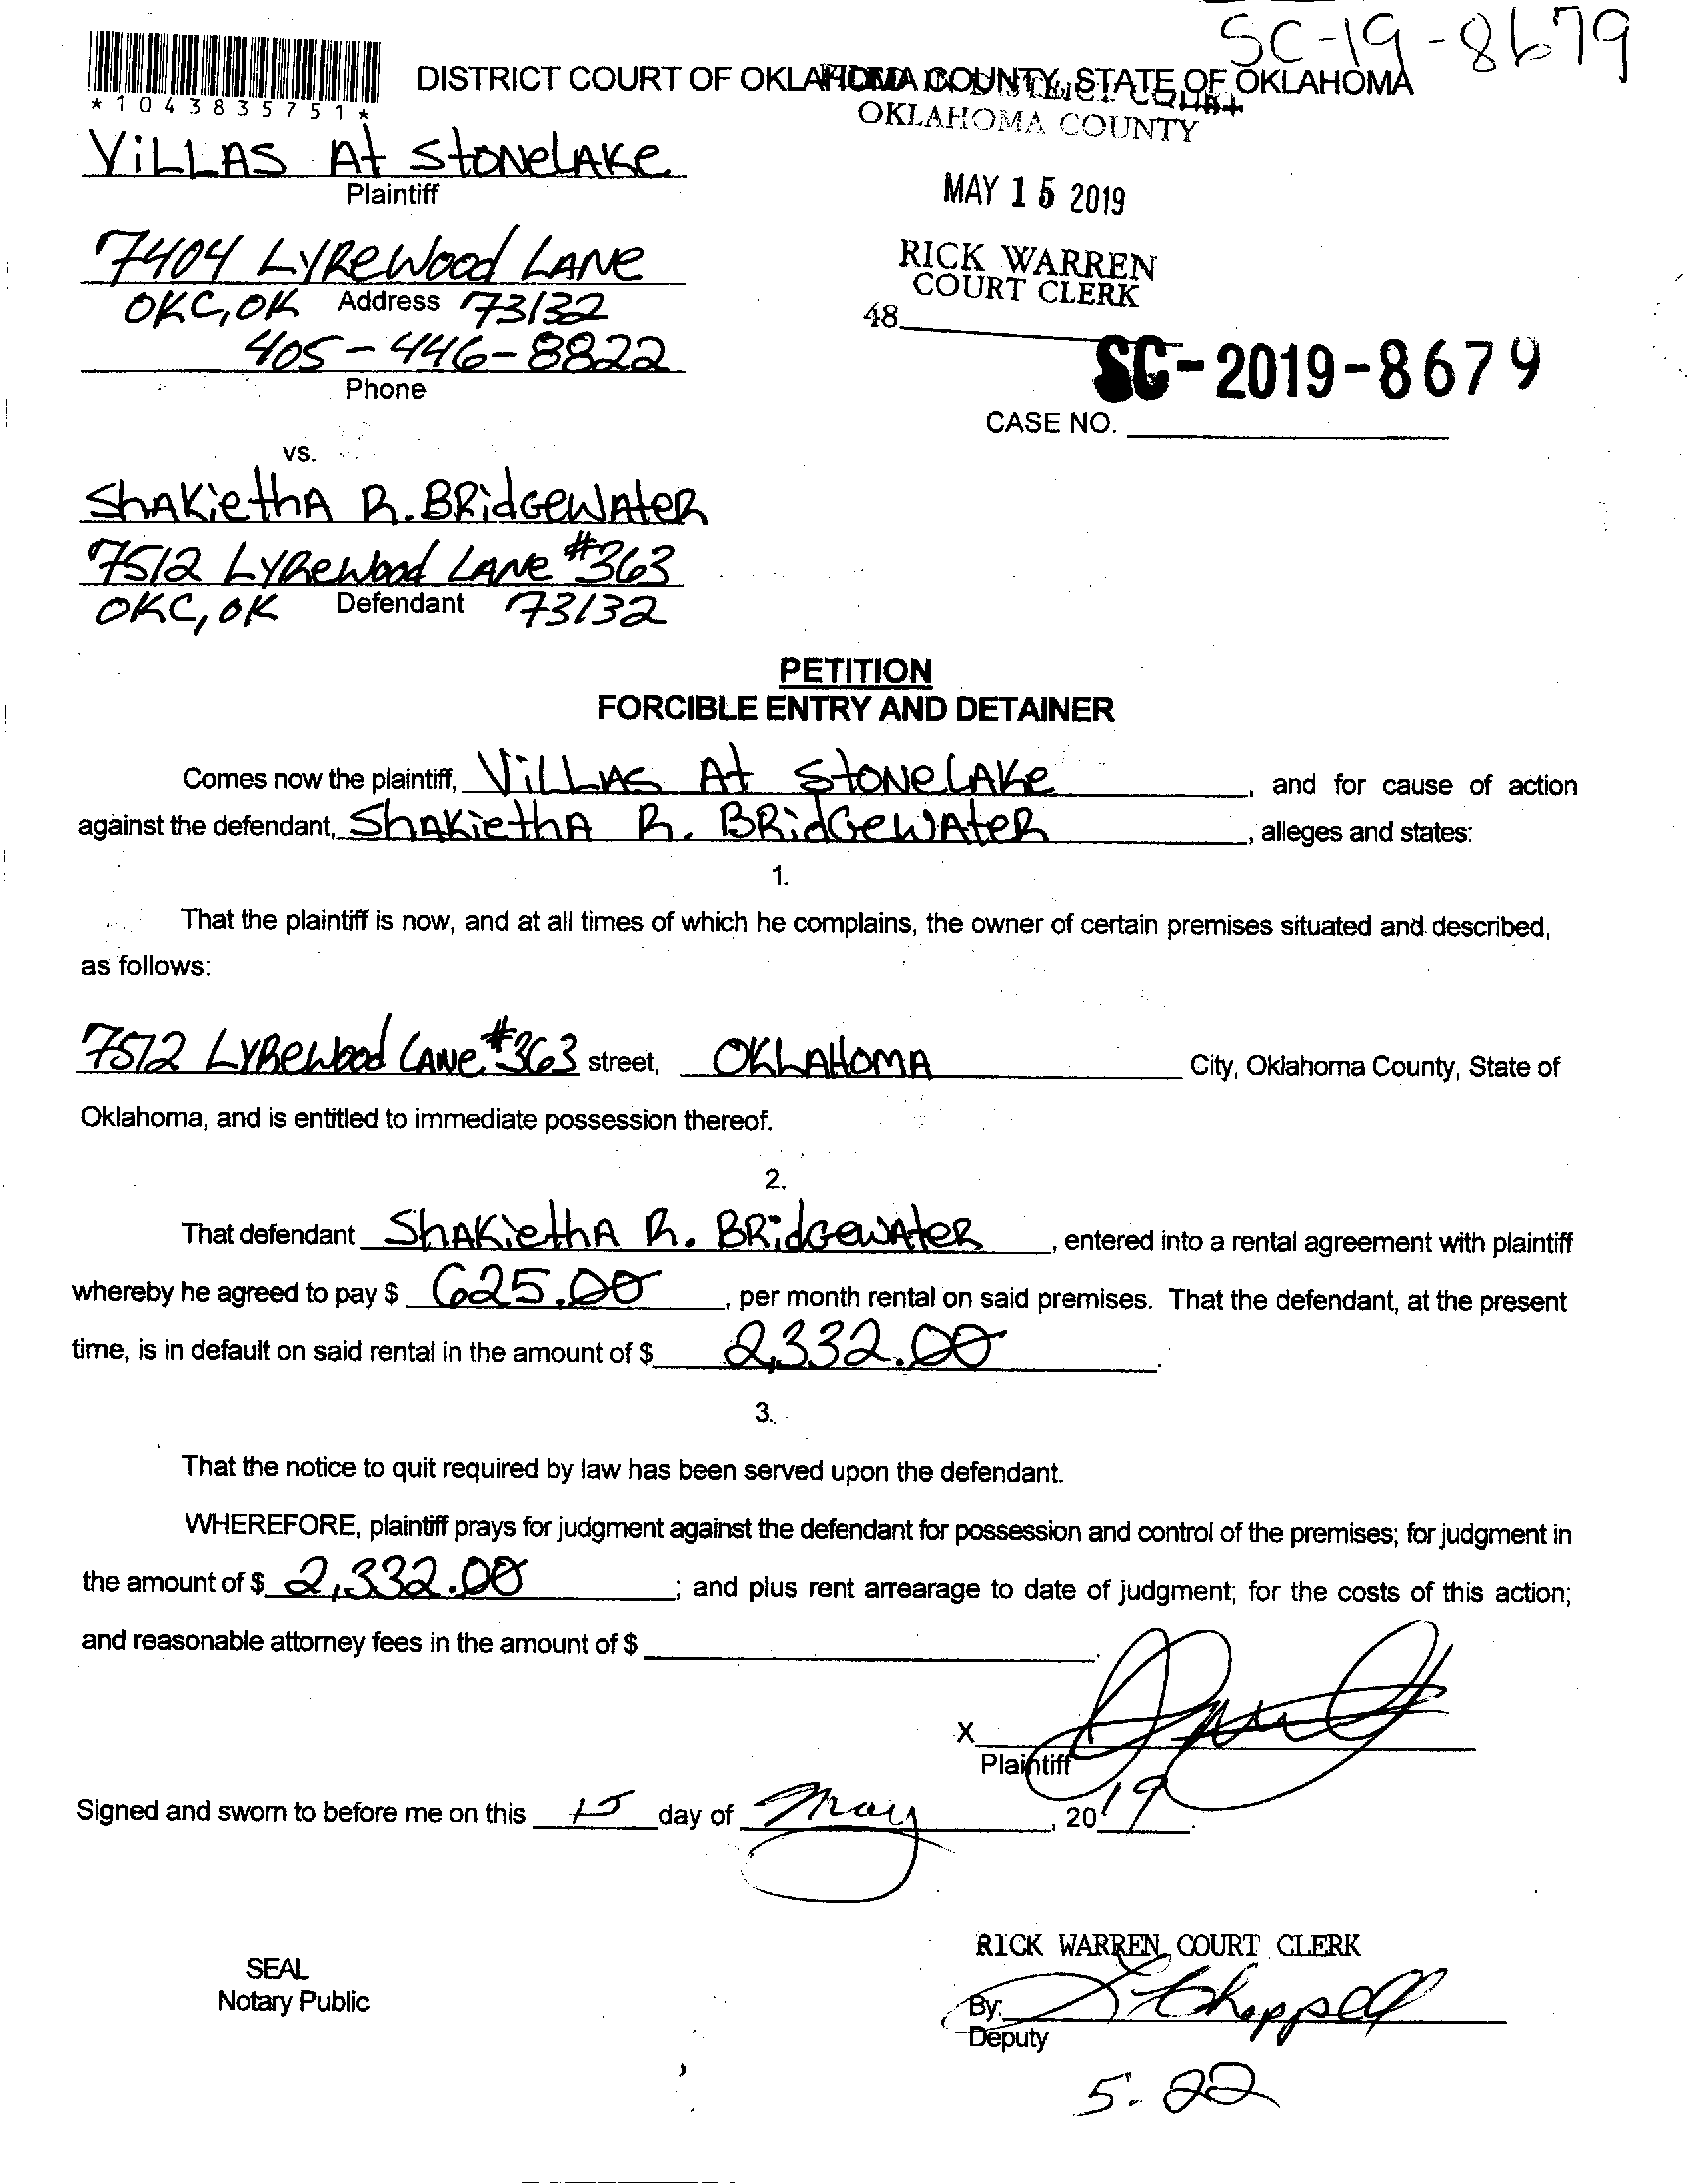 SC-19-8679
*1043835751*
DISTRICT COURT OF OKLAHOMA COUNTY, STATE OF OKLAHOMA
OKLAHOMA COUNTY
ViLLAS At StoNeLAKe
Plaintiff
MAY 15 2019
7404 LyReWood LANe
RICK WARREN
COURT CLERK
OKC, OK Address 73132
48
405-446-8822
Phone
SC-2019-8679
CASE NO.
vs.
ShAKiethA R. BRidGeWAteR
7512 LyReWood LANe #363
OKC, OK Defendant 73132
PETITION
FORCIBLE ENTRY AND DETAINER
Comes now the plaintiff, ViLLAS At StoNeLAKe, and for cause of action
against the defendant, ShAKiethA R. BRidGeWAteR, alleges and states:
1.
That the plaintiff is now, and at all times of which he complains, the owner of certain premises situated and described,
as follows:
7512 LyReWood LANe #363 street, OKLAHOMA City, Oklahoma County, State of
Oklahoma, and is entitled to immediate possession thereof.
2.
That defendant ShAKiethA R. BRidGeWAteR, entered into a rental agreement with plaintiff
whereby he agreed to pay $ 625.00, per month rental on said premises. That the defendant, at the present
time, is in default on said rental in the amount of $ 2,332.00.
3.
That the notice to quit required by law has been served upon the defendant.
WHEREFORE, plaintiff prays for judgment against the defendant for possession and control of the premises; for judgment in
the amount of $ 2,332.00; and plus rent arrearage to date of judgment; for the costs of this action;
and reasonable attorney fees in the amount of $
X
Plaintiff
Signed and sworn to before me on this 15 day of May, 2019.
RICK WARREN, COURT CLERK
SEAL
Notary Public
By:
Deputy
5-22